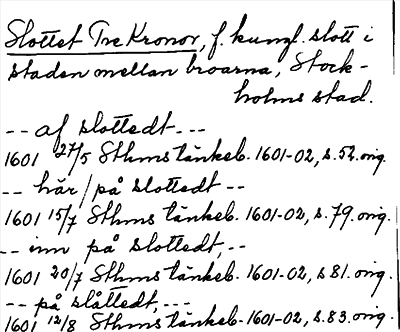 Slottet Tre Kronor, f. kungl. slott i
staden mellan broarna, Stock-
holms stad.
-- af slottedt ---
1601 27/5 Sthms tänkeb. 1601-02, s. 52. orig.
-- här/på slottedt --
1601 15/7 Sthms tänkeb. 1601-02, s. 79. orig.
-- inn på slottedt, --
1601 20/7 Sthms tänkeb. 1601-02, s 81. orig.
-- på slåttedt, ---
1601 12/8 Sthms tänkeb. 1601-02, s. 83. orig.